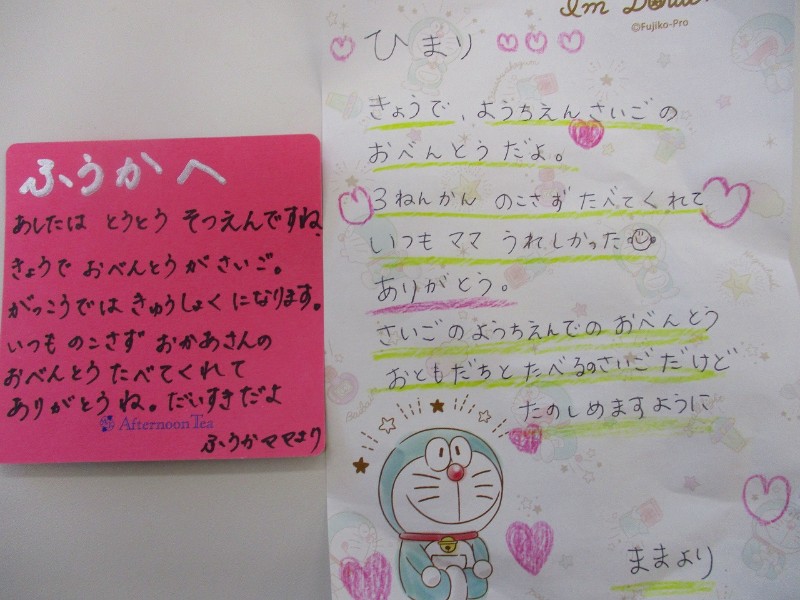 ふうかへ
あしたは とうとう そつえんですね、
きょうで おべんとうが さいご。
がっこうでは きゅうしょく になります。
いつも のこさず おかあさんの
おべんとう たべてくれて
ありがとうね。だいすきだよ
Afternoon Tea
ふうかママより
I'm Dora
©Fujiko-Pro
ひまり
きょうで、ようちえんさいごの
おべんとうだよ。
3ねんかん のこさず たべてくれて
いつも ママ うれしかった
ありがとう。
さいごのようちえんでの おべんとう
おともだちと たべるのさいごだけど
たのしめますように
ままより